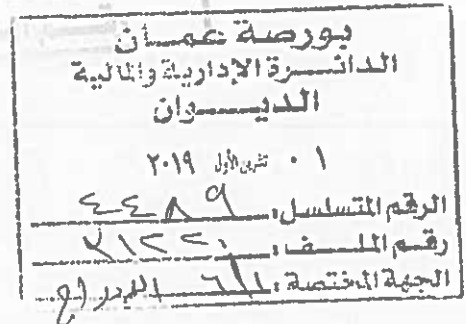 بورصة عمان
الدائرة الإدارية والمالية
الديوان
٠١ تشرين الأول ٢٠١٩
الرقم المتسلسل: ٤٤٨٩
رقم الملف:
الجهة المختصة: